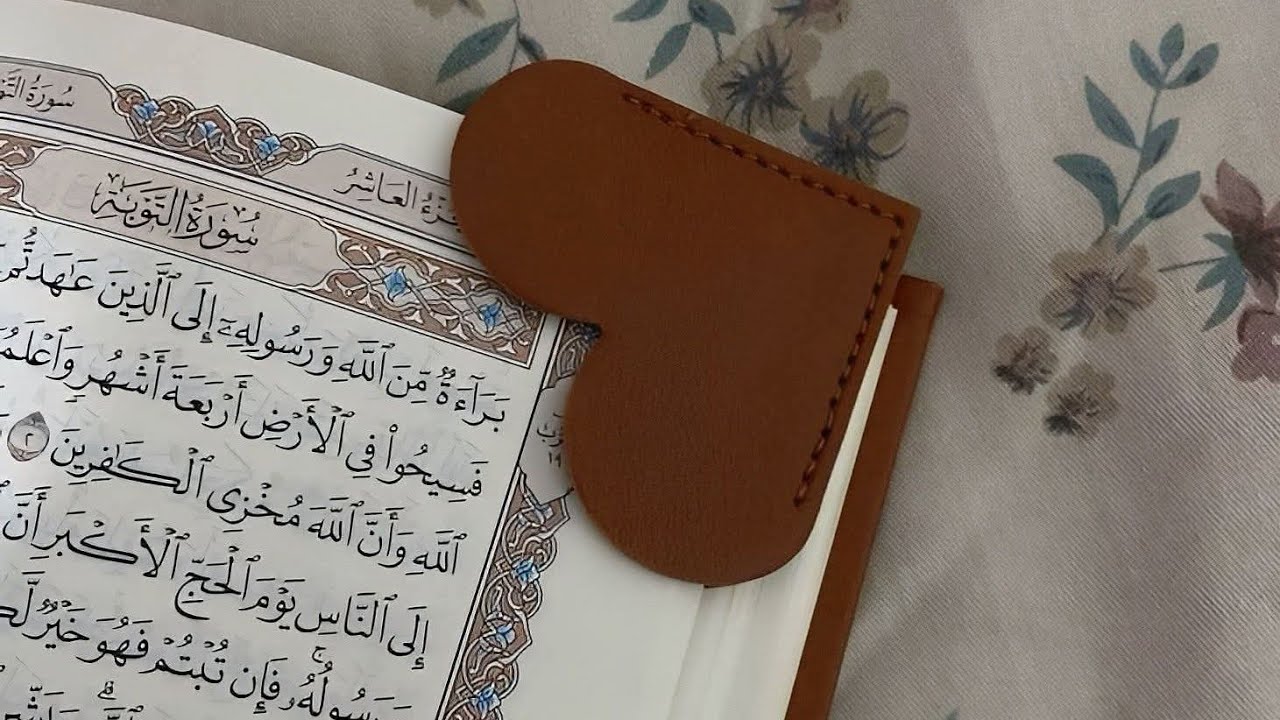 سُورَةُ التَّوْ
الْعَاشِرُ
سُورَةُ التَّوْبَةِ
بَرَآءَةٌ مِّنَ ٱللَّهِ وَرَسُولِهِۦٓ إِلَى ٱلَّذِينَ عَٰهَدتُّم
فَسِيحُوا۟ فِي ٱلْأَرْضِ أَرْبَعَةَ أَشْهُرٍ وَٱعْلَمُ
ٱللَّهِ وَأَنَّ ٱللَّهَ مُخْزِي ٱلْكَٰفِرِينَ ٢
إِلَى ٱلنَّاسِ يَوْمَ ٱلْحَجِّ ٱلْأَكْبَرِ أَنَّ
وَرَسُولُهُۥ ۚ فَإِن تُبْتُمْ فَهُوَ خَيْرٌ لَّكُ
١٩